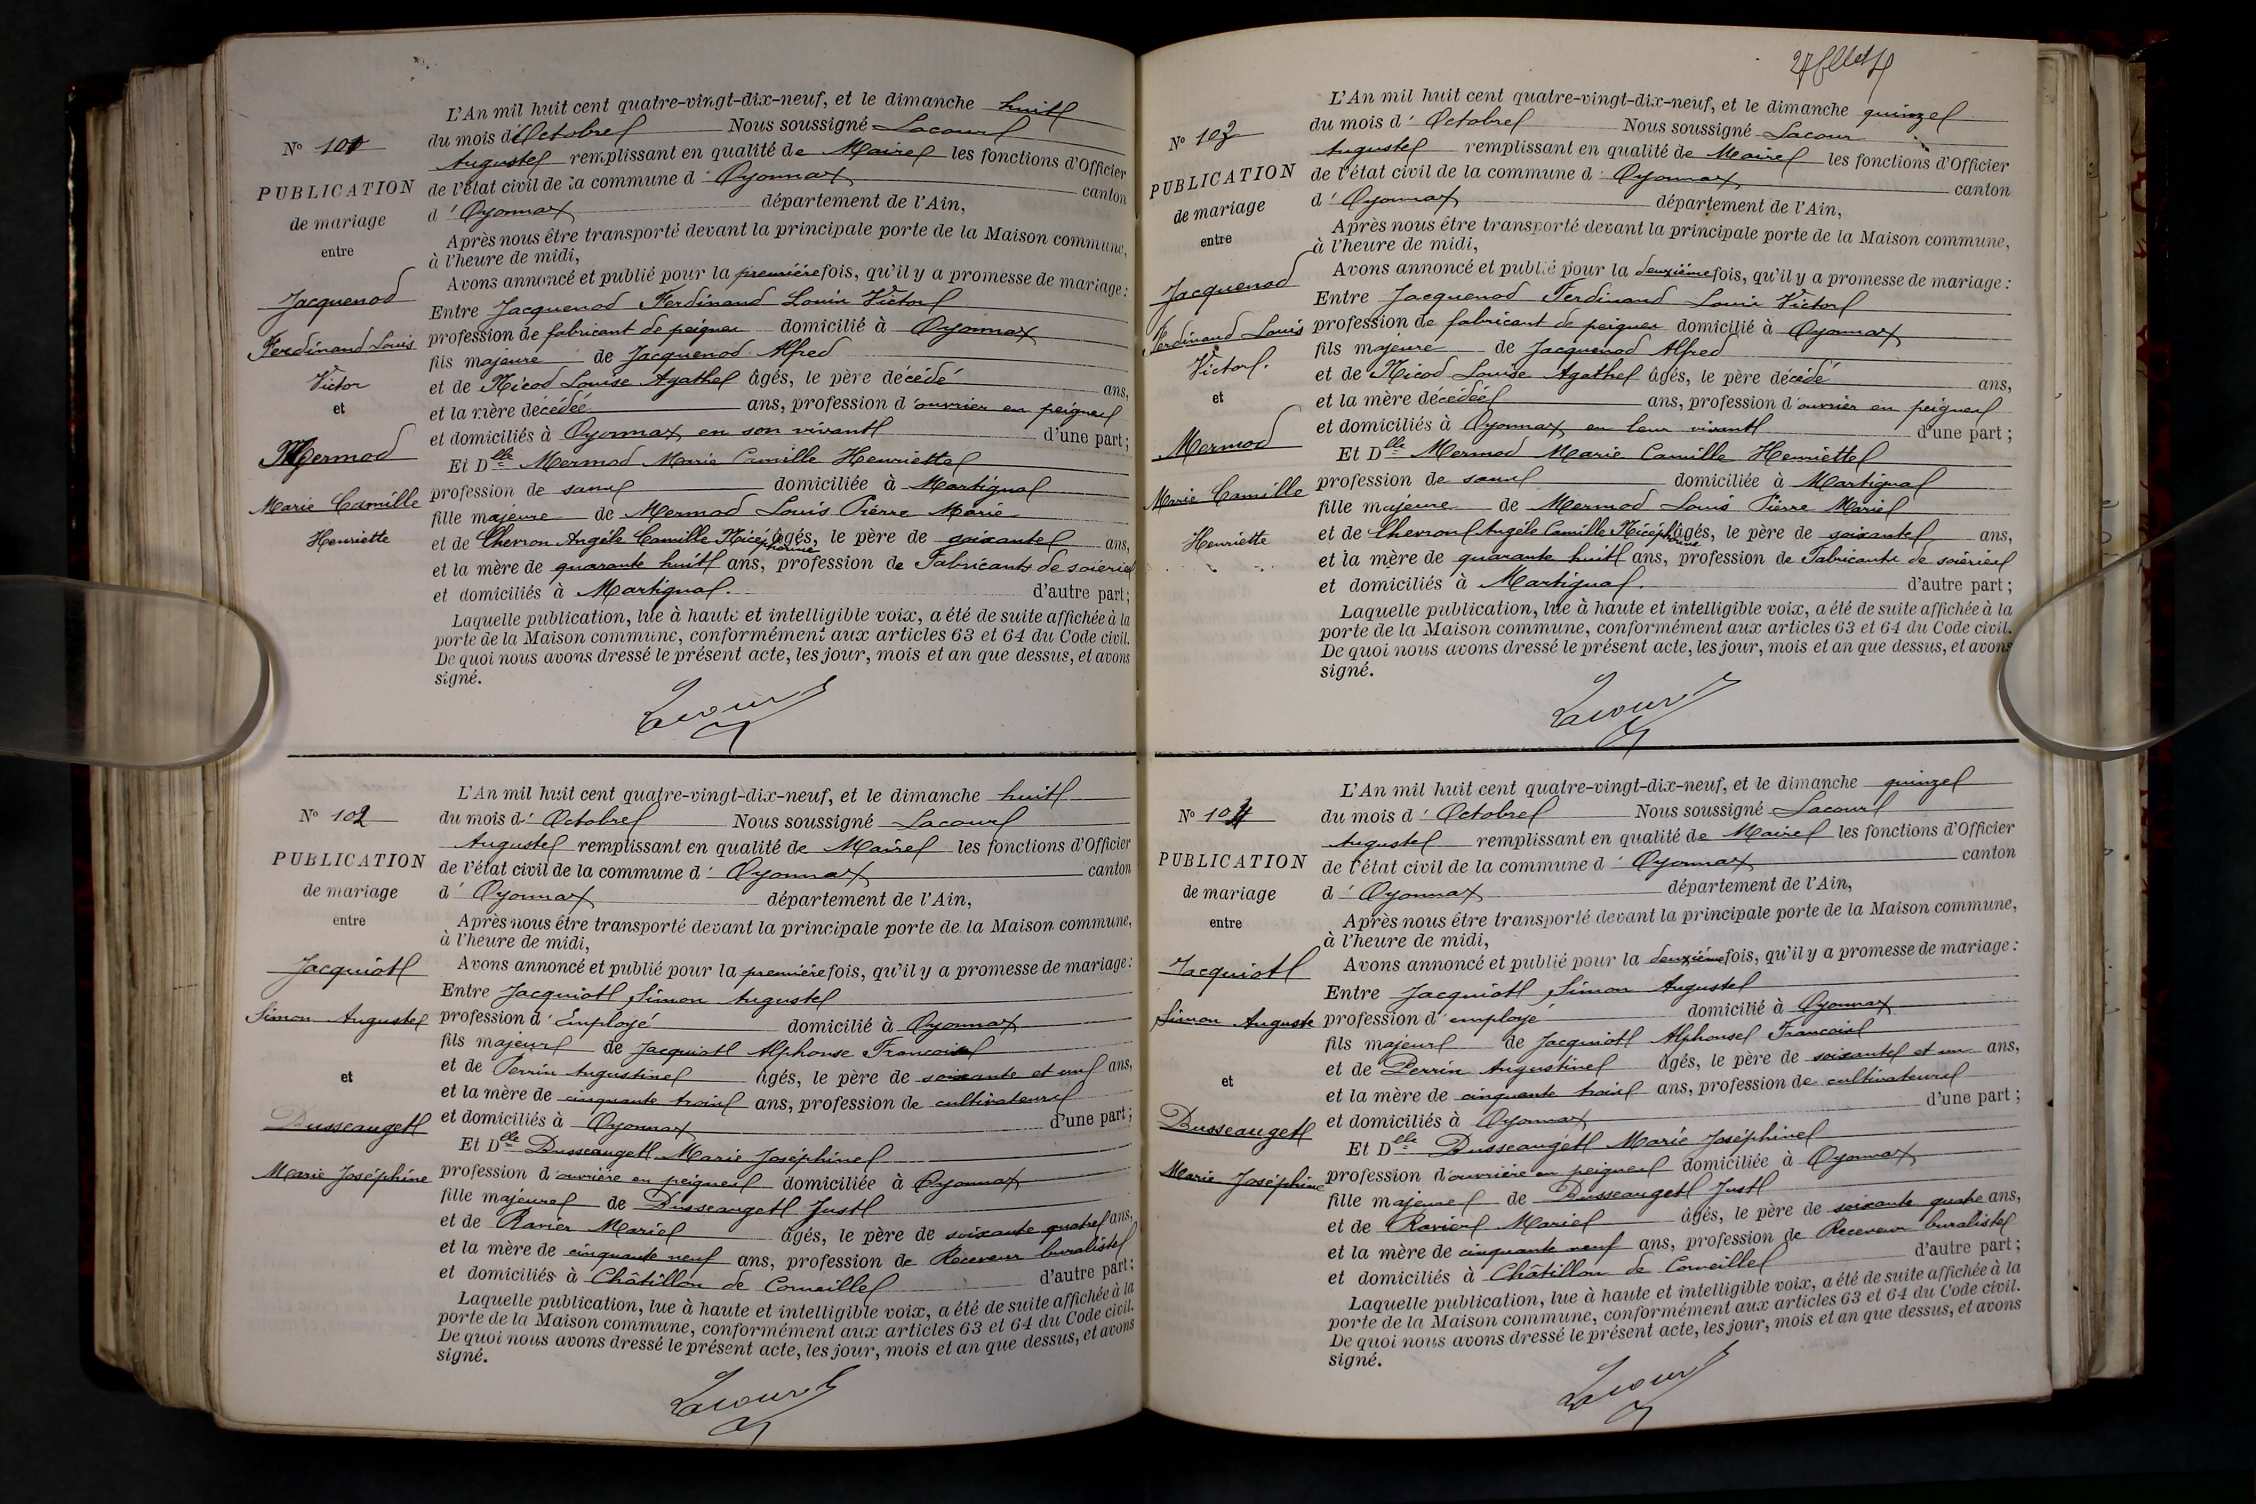 N° 101
PUBLICATION
de mariage
entre
Jacquenod
Ferdinand Louis
Victor
et
Mermod
Marie Camille
Henriette
L'An mil huit cent quatre-vingt-dix-neuf, et le dimanche huit
du mois d'Octobre Nous soussigné Lacour
Auguste remplissant en qualité de Maire les fonctions d'Officier
de l'état civil de la commune d' Oyonnax canton
d' Oyonnax département de l'Ain,
Après nous être transporté devant la principale porte de la Maison commune,
à l'heure de midi,
Avons annoncé et publié pour la première fois, qu'il y a promesse de mariage :
Entre Jacquenod Ferdinand Louis Victor
profession de fabricant de peignes domicilié à Oyonnax
fils majeure de Jacquenod Alfred
et de Nicod Louise Agathe âgés, le père décédé ans,
et la mère décédée ans, profession d'ouvrier en peignes
et domiciliés à Oyonnax en son vivant d'une part ;
Et Dlle Mermod Marie Camille Henriette
profession de sans domiciliée à Martignat
fille majeure de Mermod Louis Pierre Marie
et de Chevron Angèle Camille Nicéphorine âgés, le père de soixante ans,
et la mère de quarante huit ans, profession de Fabricants de soieries
et domiciliés à Martignat. d'autre part ;
Laquelle publication, lue à haute et intelligible voix, a été de suite affichée à la
porte de la Maison commune, conformément aux articles 63 et 64 du Code civil.
De quoi nous avons dressé le présent acte, les jour, mois et an que dessus, et avons
signé.
Lacour
N° 102
PUBLICATION
de mariage
entre
Jacquiot
Simon Auguste
et
Dusseauget
Marie Joséphine
L'An mil huit cent quatre-vingt-dix-neuf, et le dimanche huit
du mois d' Octobre Nous soussigné Lacour
Auguste remplissant en qualité de Maire les fonctions d'Officier
de l'état civil de la commune d' Oyonnax canton
d' Oyonnax département de l'Ain,
Après nous être transporté devant la principale porte de la Maison commune,
à l'heure de midi,
Avons annoncé et publié pour la première fois, qu'il y a promesse de mariage :
Entre Jacquiot Simon Auguste
profession d' Employé domicilié à Oyonnax
fils majeur de Jacquiot Alphonse Francois
et de Perrin Augustine âgés, le père de soixante et un ans,
et la mère de cinquante trois ans, profession de cultivateurs
et domiciliés à Oyonnax d'une part ;
Et Dlle Dusseauget Marie Joséphine
profession d'ouvrière en peignes domiciliée à Oyonnax
fille majeure de Dusseauget Just
et de Ravier Marie âgés, le père de soixante quatre ans,
et la mère de cinquante neuf ans, profession de Receveur buraliste
et domiciliés à Châtillon de Corneille d'autre part ;
Laquelle publication, lue à haute et intelligible voix, a été de suite affichée à la
porte de la Maison commune, conformément aux articles 63 et 64 du Code civil.
De quoi nous avons dressé le présent acte, les jour, mois et an que dessus, et avons
signé.
Lacour
N° 103
PUBLICATION
de mariage
entre
Jacquenod
Ferdinand Louis
Victor.
et
Mermod
Marie Camille
Henriette
L'An mil huit cent quatre-vingt-dix-neuf, et le dimanche quinze
du mois d' Octobre Nous soussigné Lacour
Auguste remplissant en qualité de Maire les fonctions d'Officier
de l'état civil de la commune d' Oyonnax canton
d' Oyonnax département de l'Ain,
Après nous être transporté devant la principale porte de la Maison commune,
à l'heure de midi,
Avons annoncé et publié pour la deuxième fois, qu'il y a promesse de mariage :
Entre Jacquenod Ferdinand Louis Victor
profession de fabricant de peignes domicilié à Oyonnax
fils majeure de Jacquenod Alfred
et de Nicod Louise Agathe âgés, le père décédé ans,
et la mère décédée ans, profession d'ouvrier en peignes
et domiciliés à Oyonnax en leur vivant d'une part ;
Et Dlle Mermod Marie Camille Henriette
profession de sans domiciliée à Martignat
fille majeure de Mermod Louis Pierre Marie
et de Chevron Angèle Camille Nicéphorine âgés, le père de soixante ans,
et la mère de quarante huit ans, profession de Fabricants de soieries
et domiciliés à Martignat. d'autre part ;
Laquelle publication, lue à haute et intelligible voix, a été de suite affichée à la
porte de la Maison commune, conformément aux articles 63 et 64 du Code civil.
De quoi nous avons dressé le présent acte, les jour, mois et an que dessus, et avons
signé.
Lacour
N° 104
PUBLICATION
de mariage
entre
Jacquiot
Simon Auguste
et
Dusseauget
Marie Joséphine
L'An mil huit cent quatre-vingt-dix-neuf, et le dimanche quinze
du mois d' Octobre Nous soussigné Lacour
Auguste remplissant en qualité de Maire les fonctions d'Officier
de l'état civil de la commune d' Oyonnax canton
d' Oyonnax département de l'Ain,
Après nous être transporté devant la principale porte de la Maison commune,
à l'heure de midi,
Avons annoncé et publié pour la deuxième fois, qu'il y a promesse de mariage :
Entre Jacquiot Simon Auguste
profession d' employé domicilié à Oyonnax
fils majeur de Jacquiot Alphonse Francois
et de Perrin Augustine âgés, le père de soixante et un ans,
et la mère de cinquante trois ans, profession de cultivateurs
et domiciliés à Oyonnax d'une part ;
Et Dlle Dusseauget Marie Joséphine
profession d'ouvrière en peignes domiciliée à Oyonnax
fille majeure de Dusseauget Just
et de Ravier Marie âgés, le père de soixante quatre ans,
et la mère de cinquante neuf ans, profession de Receveur buraliste
et domiciliés à Châtillon de Corneille d'autre part ;
Laquelle publication, lue à haute et intelligible voix, a été de suite affichée à la
porte de la Maison commune, conformément aux articles 63 et 64 du Code civil.
De quoi nous avons dressé le présent acte, les jour, mois et an que dessus, et avons
signé.
Lacour